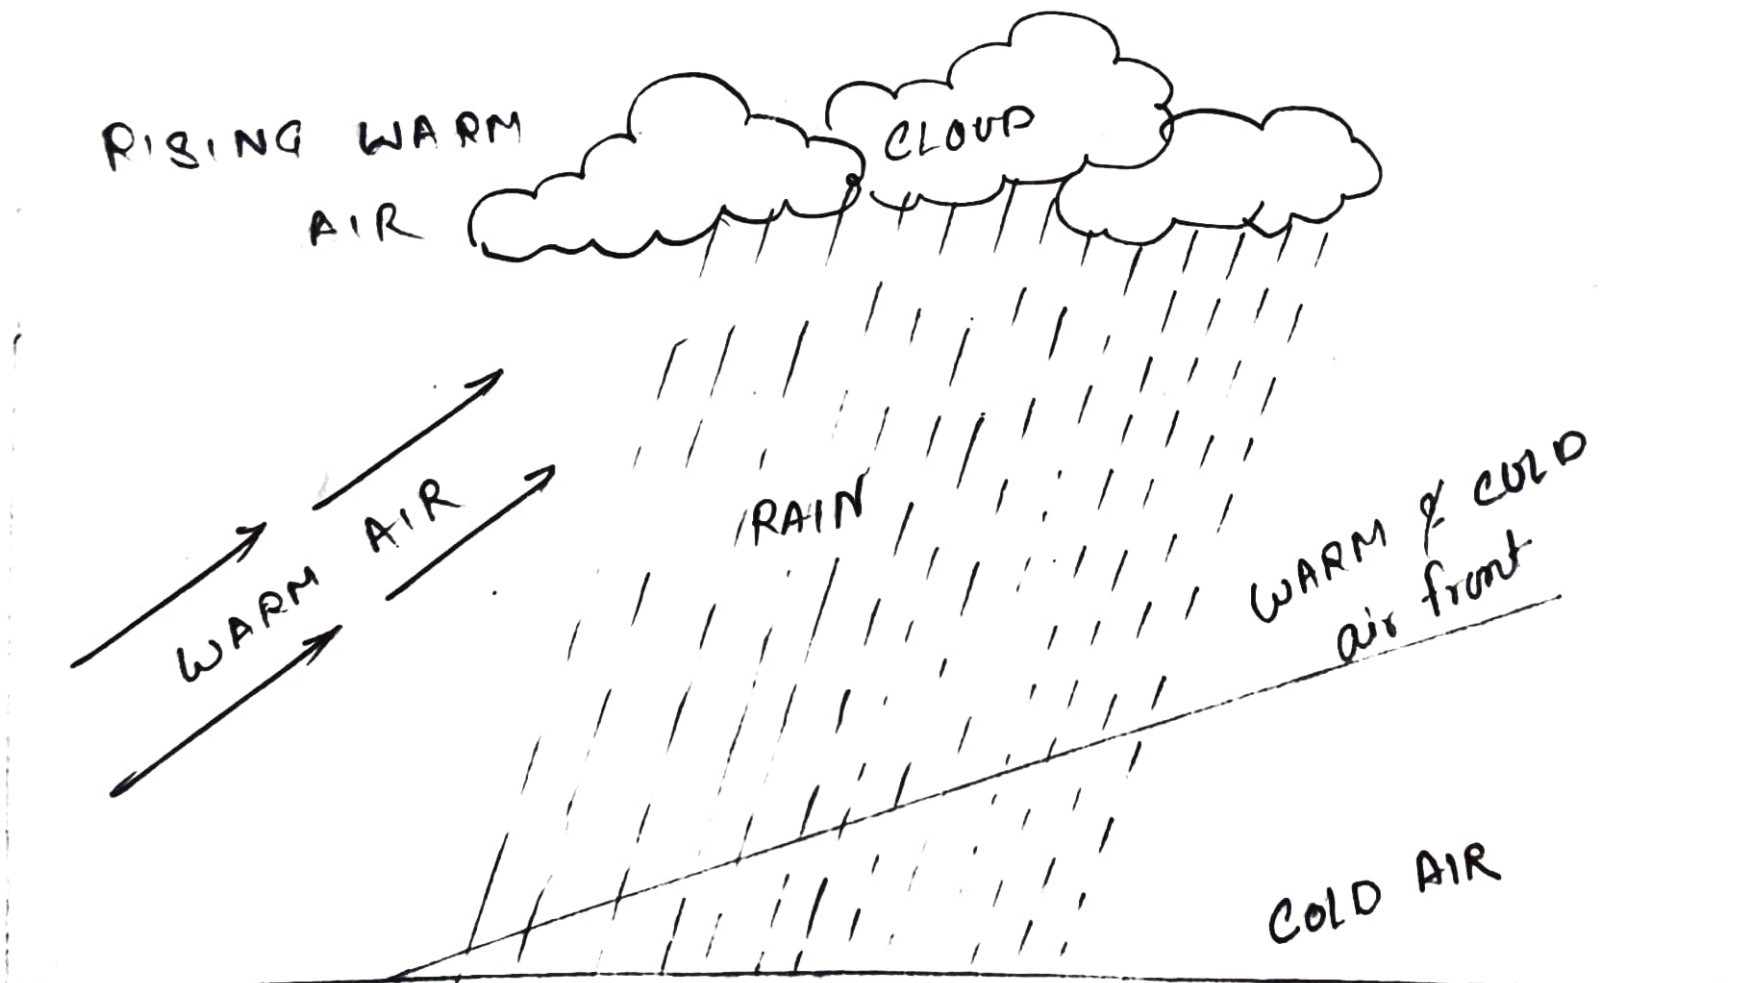 RISING WARM
AIR
CLOUD
WARM AIR
RAIN
WARM & COLD
air front
COLD AIR